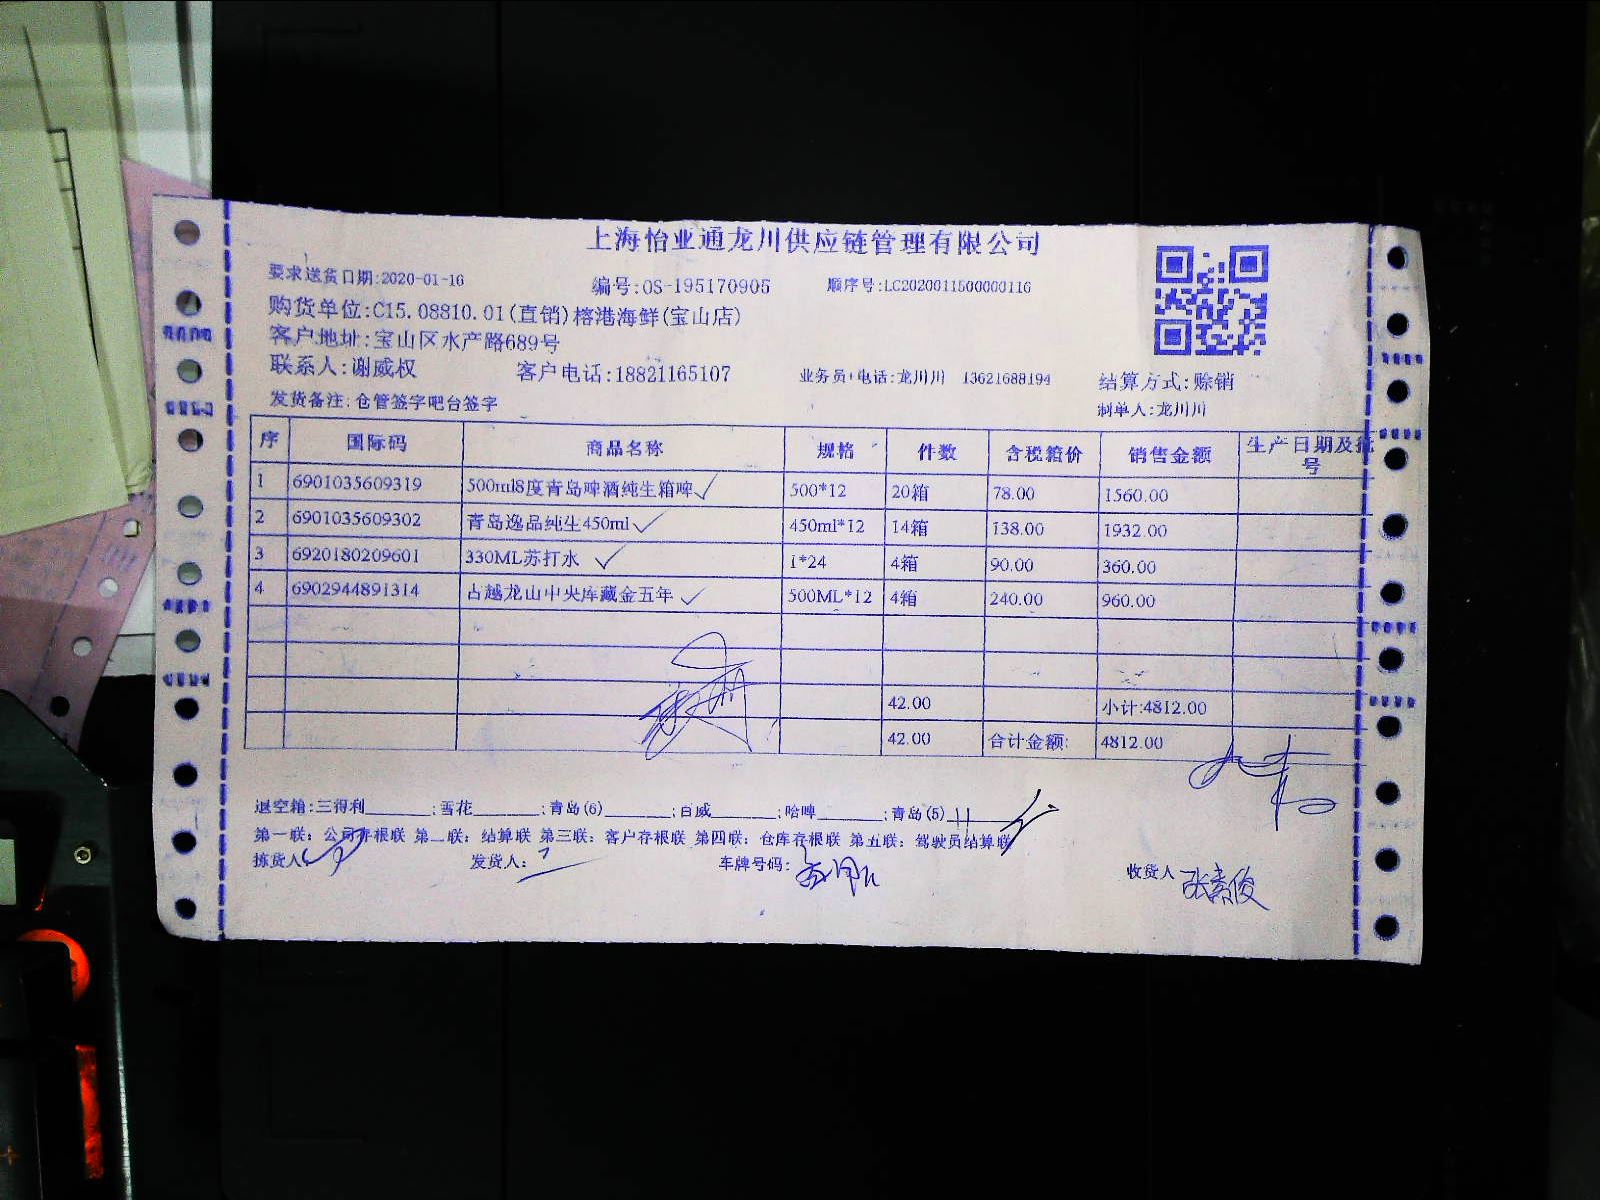 上海怡亚通龙川供应链管理有限公司
要求送货日期:2020-01-16 编号:OS-195170905 顺序号:LC2020011500000116
购货单位:C15.08810.01(直销)榕港海鲜(宝山店)
客户地址:宝山区水产路689号
联系人:谢威权 客户电话:18821165107 业务员+电话:龙川川 13621688194 结算方式:赊销
发货备注:仓管签字吧台签字 制单人:龙川川
序 国际码 商品名称 规格 件数 含税箱价 销售金额 生产日期及批号
1 6901035609319 500ml8度青岛啤酒纯生箱啤 500*12 20箱 78.00 1560.00
2 6901035609302 青岛逸品纯生450ml 450ml*12 14箱 138.00 1932.00
3 6920180209601 330ML苏打水 1*24 4箱 90.00 360.00
4 6902944891314 古越龙山中央库藏金五年 500ML*12 4箱 240.00 960.00
42.00 小计:4812.00
42.00 合计金额: 4812.00
退空箱:三得利______;雪花______;青岛(6)______;百威______;哈啤______;青岛(5) 11
第一联: 公司存根联 第二联: 结算联 第三联: 客户存根联 第四联: 仓库存根联 第五联: 驾驶员结算联
拣货人 发货人: 车牌号码: 收货人